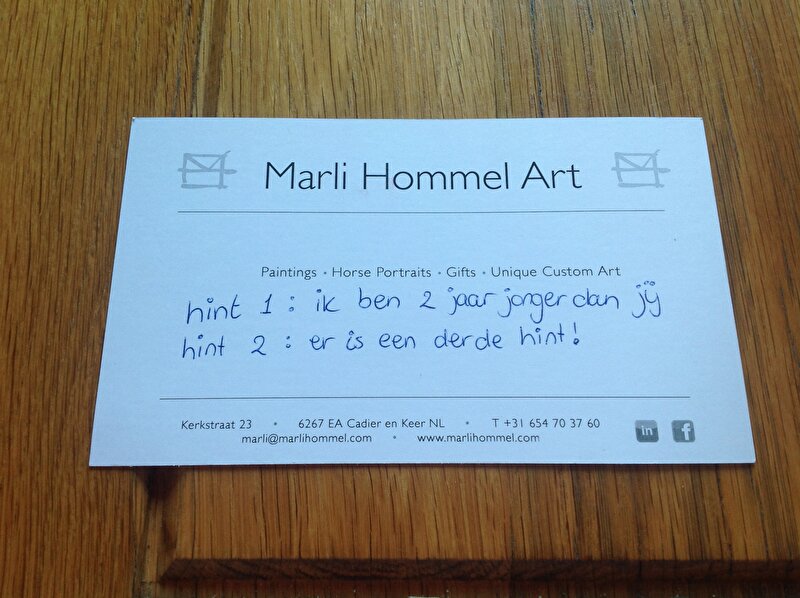 Marli Hommel Art
Paintings • Horse Portraits • Gifts • Unique Custom Art
hint 1 : ik ben 2 jaar jonger dan jij
hint 2 : er is een derde hint!
Kerkstraat 23 • 6267 EA Cadier en Keer NL • T +31 654 70 37 60
marli@marlihommel.com • www.marlihommel.com
in f